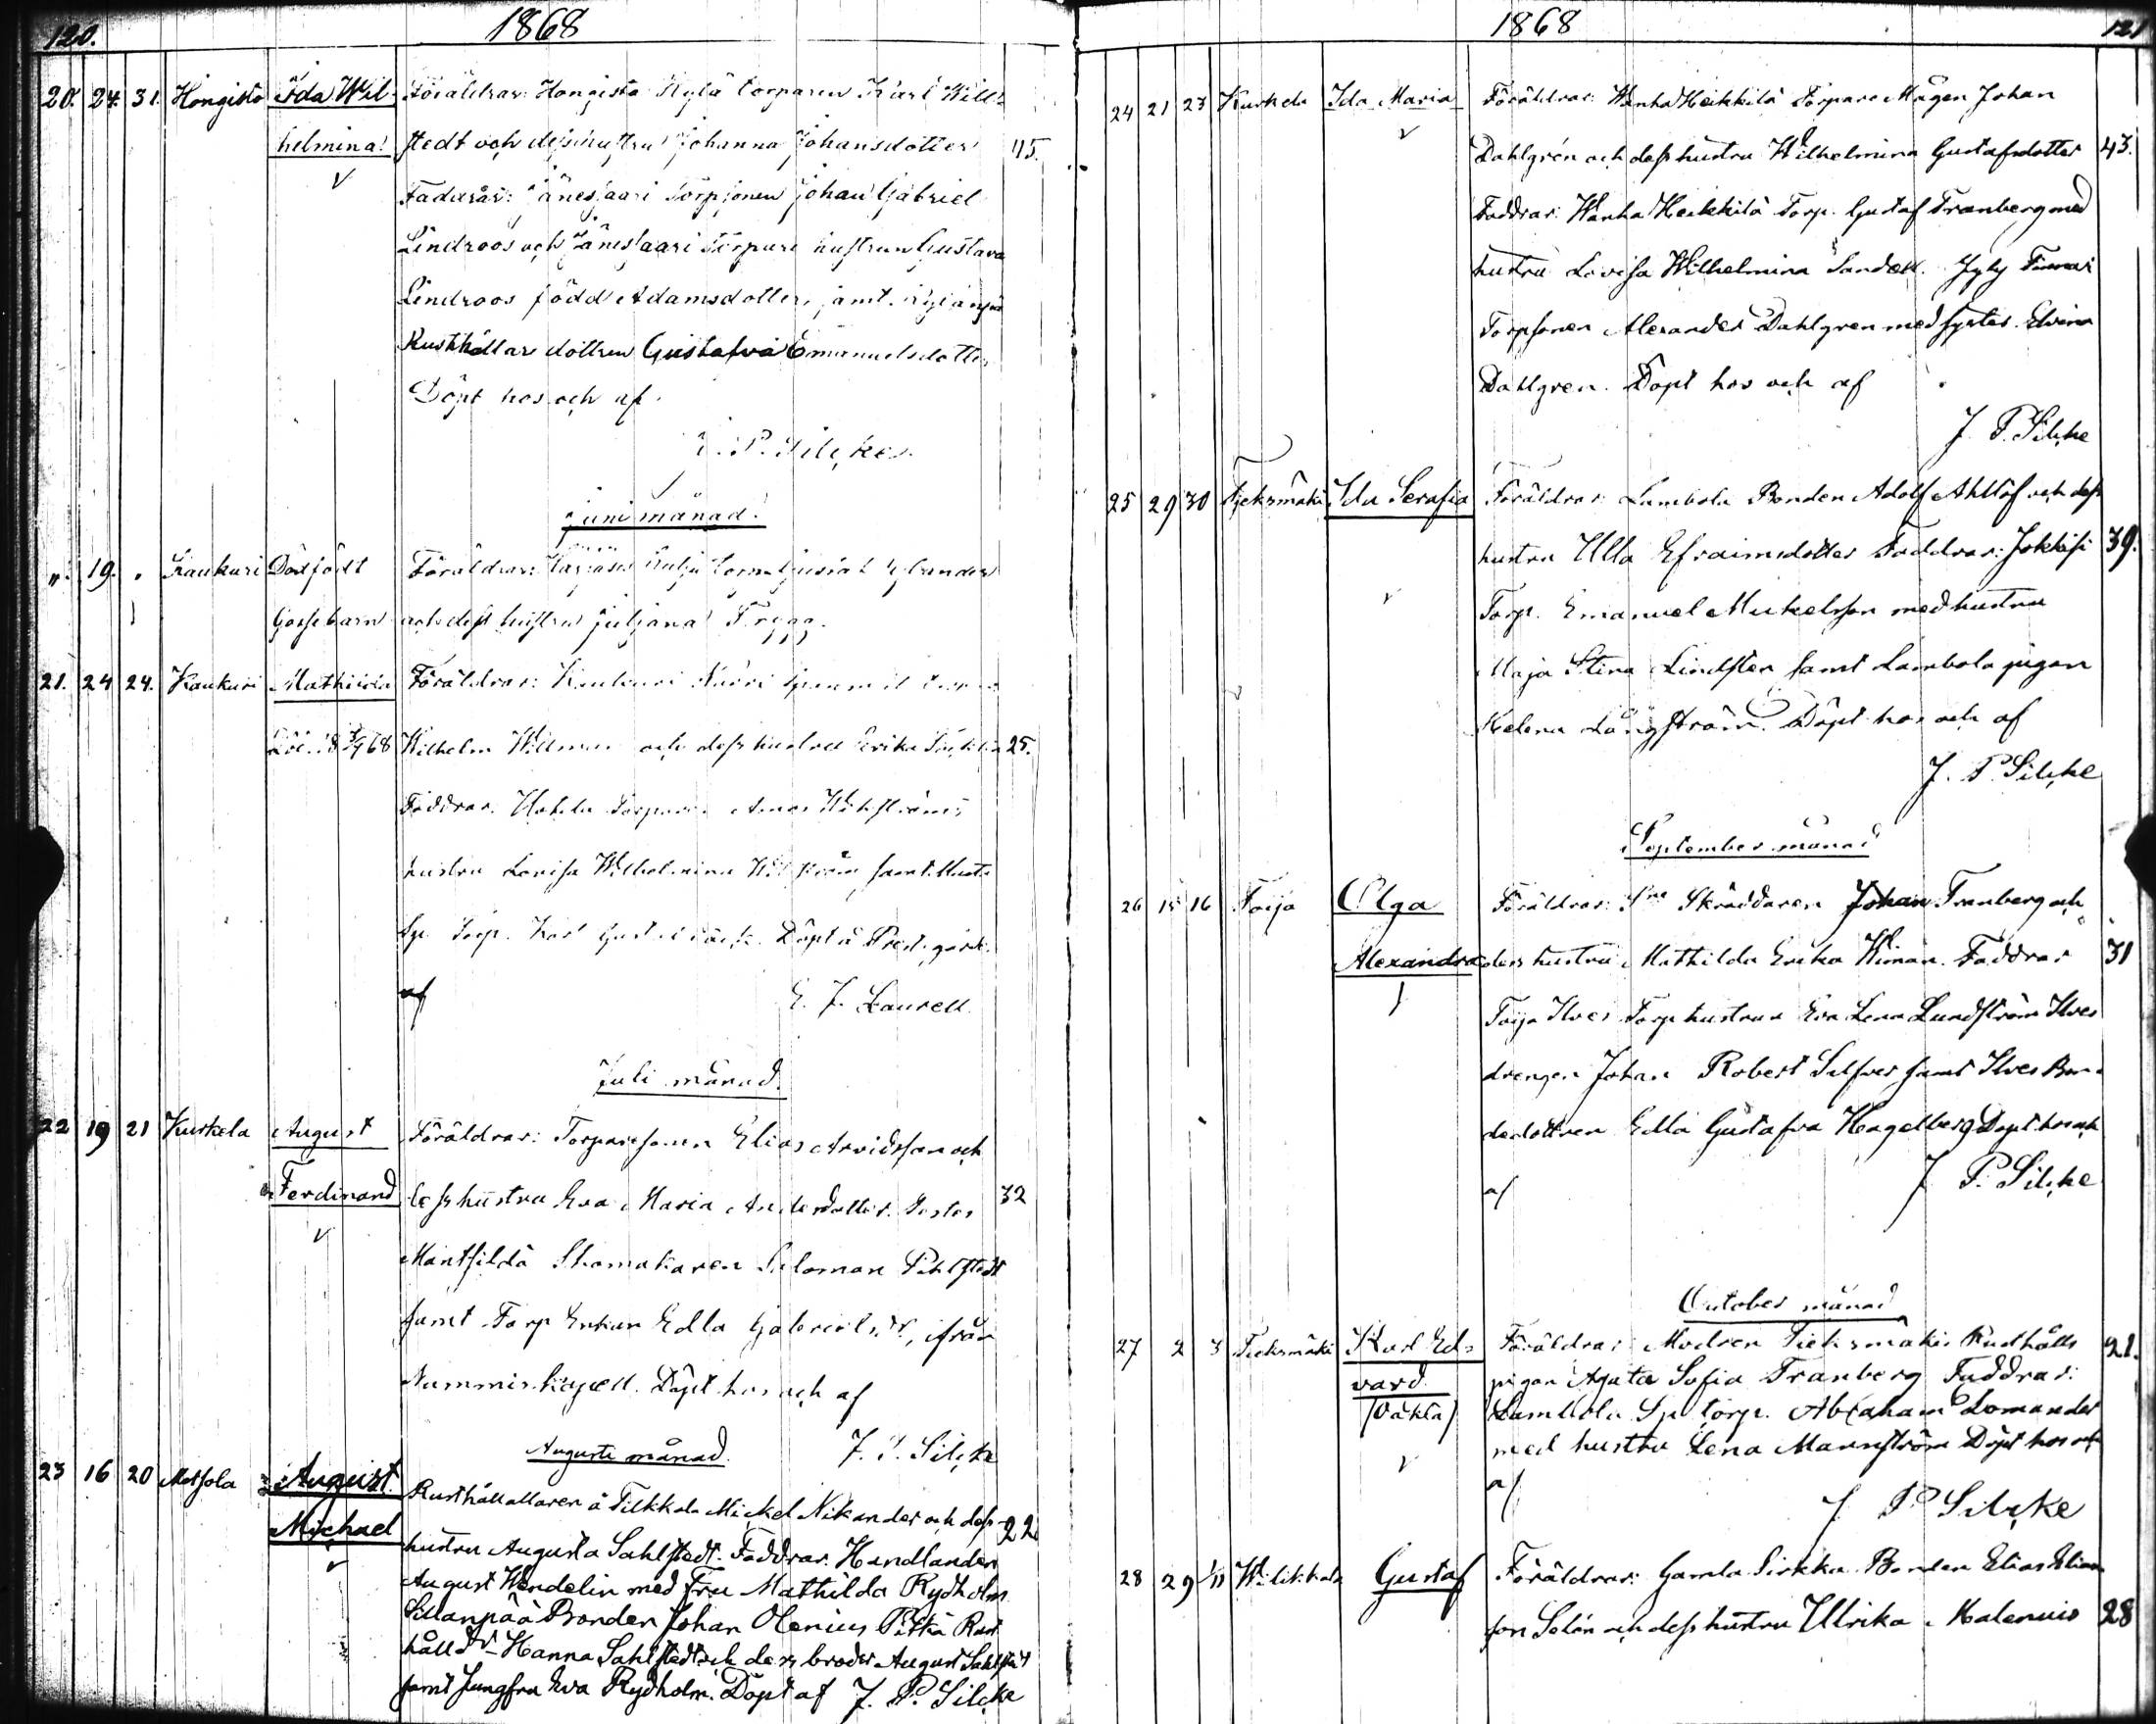 120.
1868
20. 24. 31. Hongisto Ida Wil- Föräldrar: Hongisto Kylä torparen Karl Will-
helmina stedt och dess hustru Johanna Johansdotter 45.
Faddrar: Jänessaari Torpsonen Johan Gabriel
Lindroos och Jänessaari Torpare hustrun Gustava
Lindroos född Adamsdotter, samt
Rusthållar dottren Gustafva Emanuelsdotter
Döpt hos och af
J. P. Silcke
Juni månad.
". 19. " Kaukuri Dödfödt Föräldrar:
Gossebarn och dess hustru Juljana Trygg.
21. 24 24. Kaukuri Mathilda Föräldrar: Kaukuri
68 Wilhelm Willman och dess hustru Erika 25.
Faddrar.
hustru Lovisa Wilhelmina samt
Torp. Karl Döpt å Prestgård.
af E. J. Laurell
Juli månad.
22 19 21 Kurkela August Föräldrar: Torparesonen Elias Arvidsson och
Ferdinand dess hustru Eva Maria Andersdotter. Testes 32
Mantsilda Skomakaren Salomon Pihlstedt
samt Torp Enkan Edla Gabriels dr, ifrån
Nummis kapell. Döpt hos och af
Augusti månad. J. P. Silcke
23 16 20 Metsola August Rusthållaren å Tilkkala Mickel Nikander och dess 22
Michael hustru Augusta Sahlstedt. Faddrar. Handlanden
August Wendelin med Fru Mathilda Rydholm
Sillanpää Bonden Johan Olenius Pitkä Rust
håll dr Hanna Sahlstedt och dess broder August Sahlstedt
samt Jungfru Eva Rydholm. Döpt af J. P. Silcke
1868
121
24 21 23 Kurkela Ida Maria Föräldrar: Wanha Heikkilä Torpare Mågen Johan
Dahlgrén och dess hustru Wilhelmina Gustafsdotter 43.
Faddrar: Wanha Heikkilä Torp. Gustaf Tranberg med
hustru Lovisa Wilhelmina Sandell. Jyly
Torpsonen Alexander Dahlgren med syster Elvina
Dahlgren. Döpt hos och af
J. P. Silcke
25 29 30 Tieksmäki Ida Serafia Föräldrar: Lambola Bonden Adolf Ahllöf och dess
hustru Ulla Efraimsdotter Faddrar: Jokkisi 39.
Torp. Emanuel Mickelsson med hustru
Maja Stina Lindsten samt Lambola pigan
Helena Långström. Döpt hos och af
J. P. Silcke
September månad
26 15 16 Toija Olga Föräldrar: Sne Skräddaren Johan Tranberg och
Alexandra dess hustru Mathilda Erika Wiman. Faddrar 31
Toija Ilves Torp hustrun Eva Lena Lundström Ilves
drengen Johan Robert Silfver samt Ilves Bon-
dedottren Edla Gustafva Hagelberg Döpt hos och
af J. P. Silcke
October månad
27 2 3 Tieksmäki Karl Ed- Föräldrar: Modren Tieksmäki Rusthålls 21.
vard pigan Agata Sofia Tranberg Faddrar:
/Oäkta/ Lambola Sp torp. Abraham Lomander
med hustru Lena Mannström Döpt hos och
af
J P Silcke
28 29 1/11 Wilikkala Gustaf Föräldrar: Gamla Sirkka Bonden Elias Elias-
son Selén och dess hustru Ulrika Malenius 28